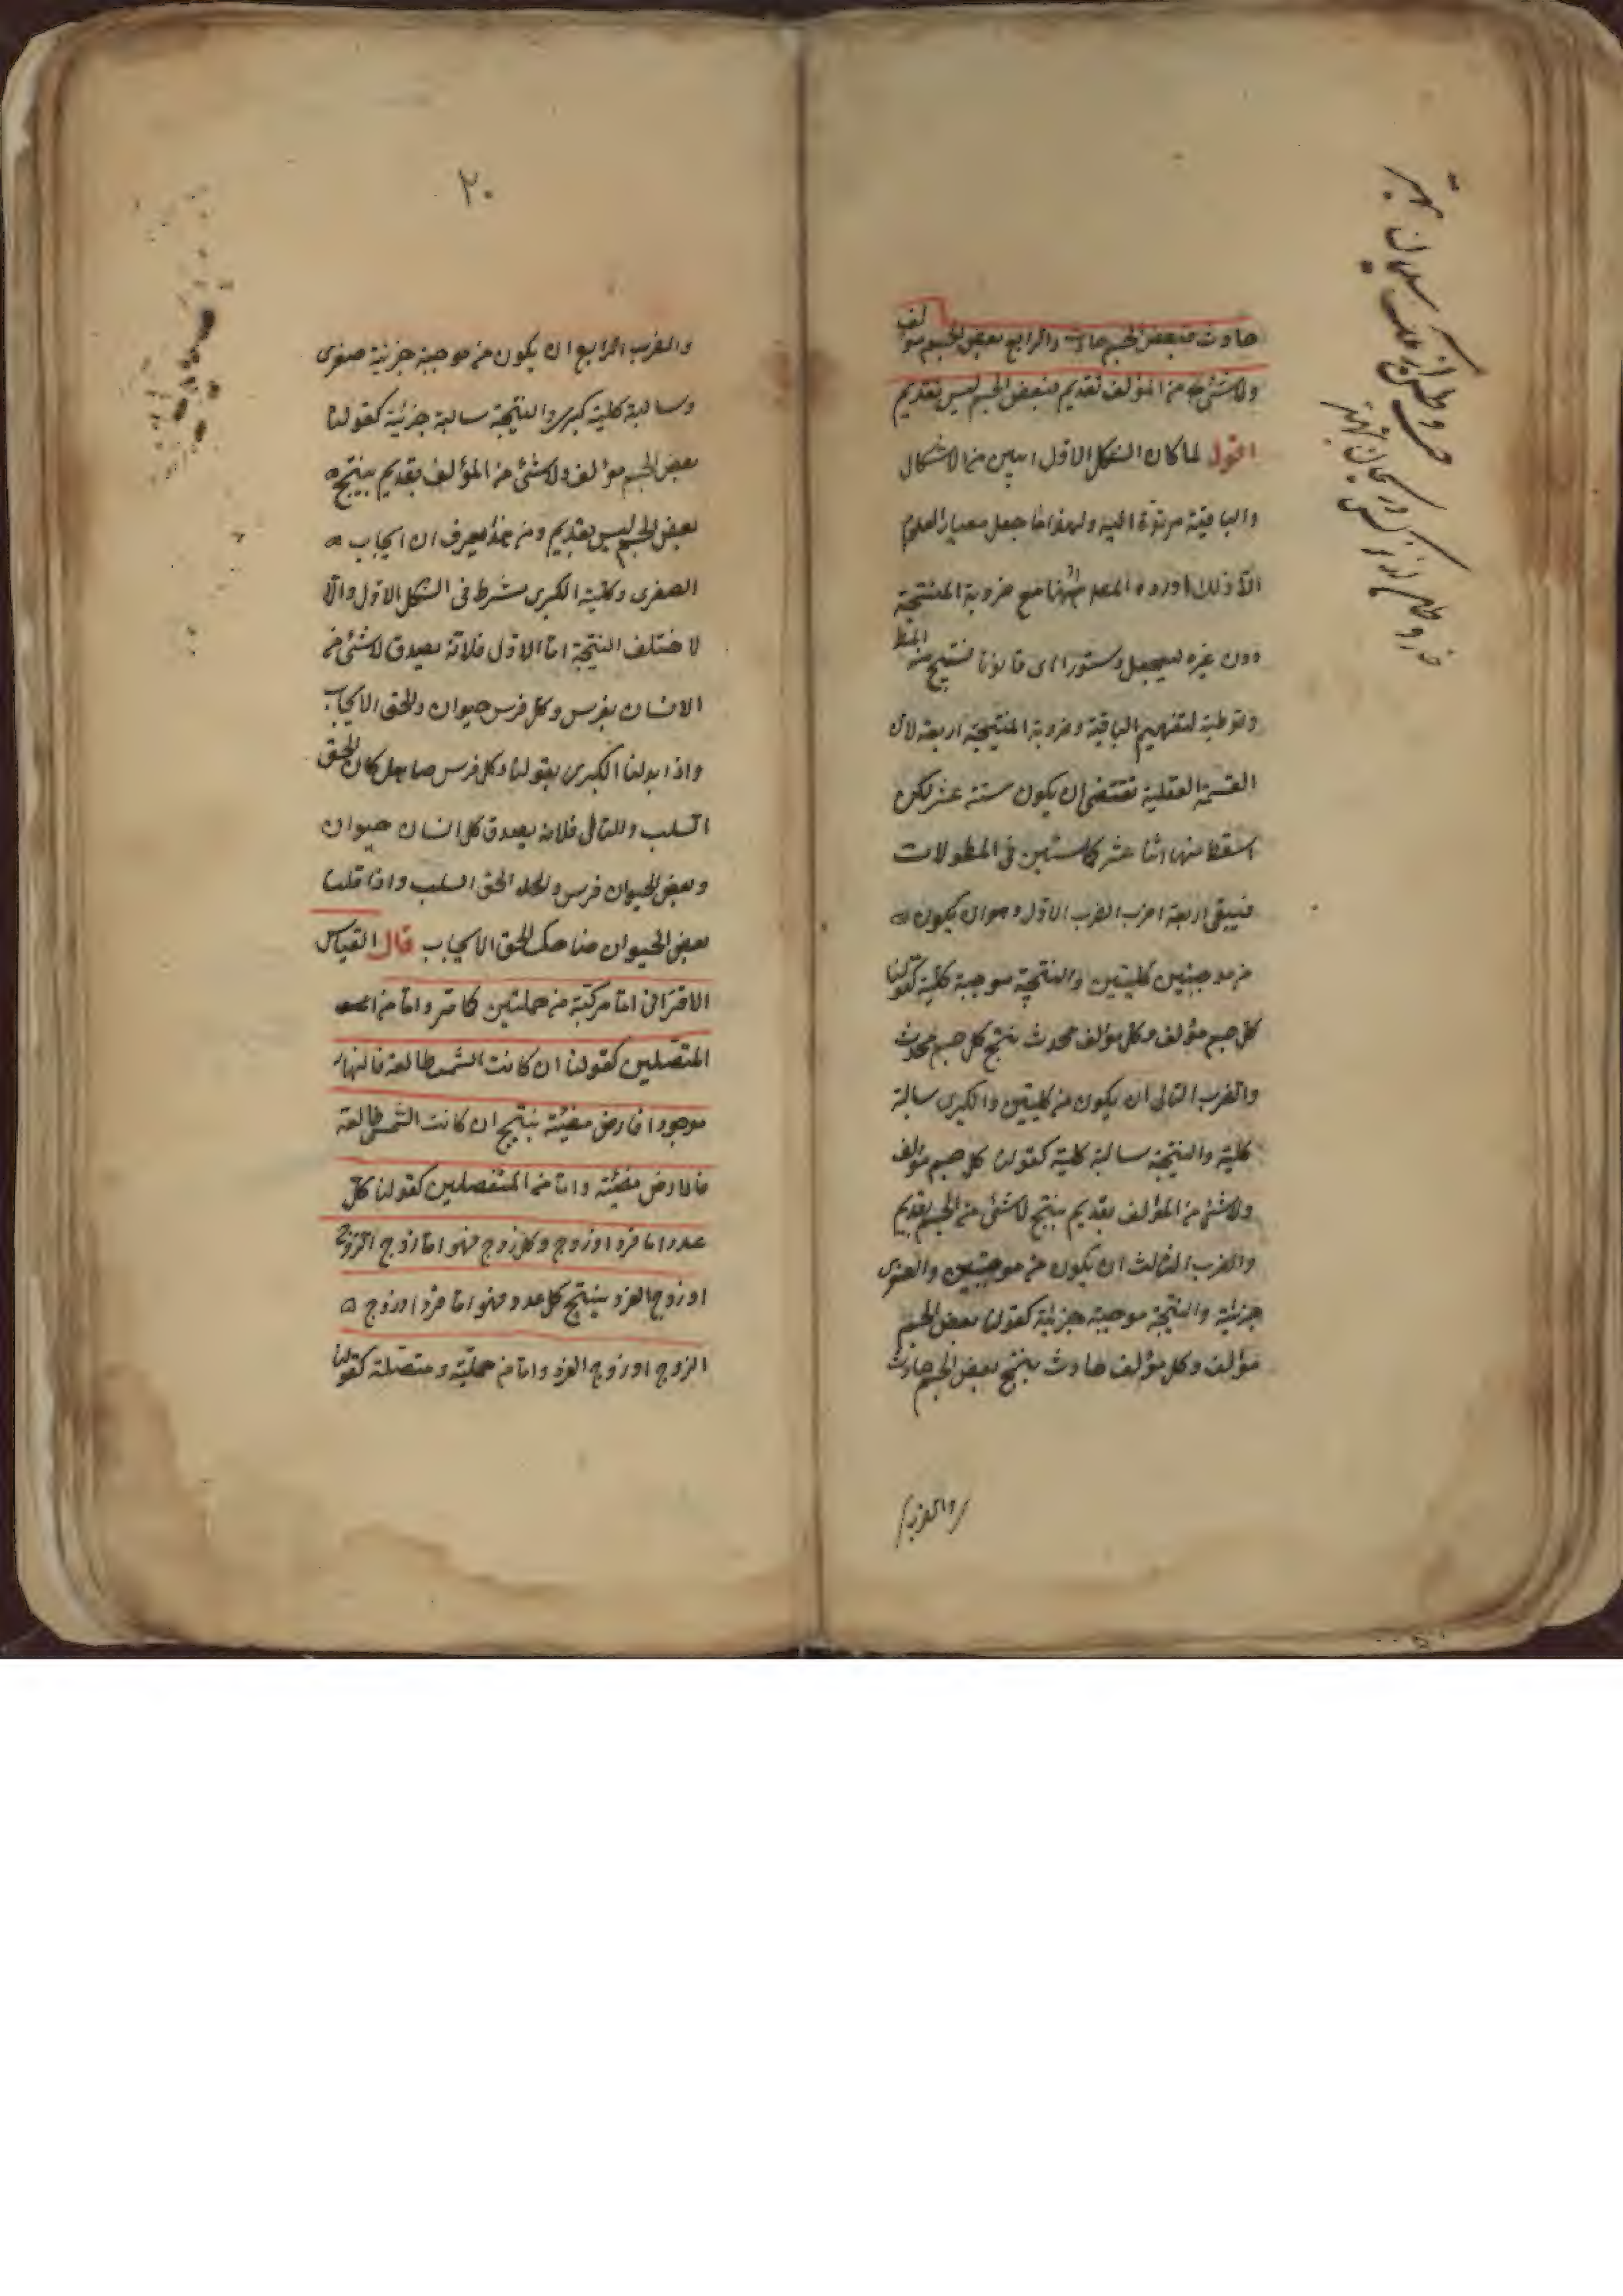 حادث فبعض الجسم حادث والرابع بعض الجسم مؤلف
ولا شئ من المؤلف بقديم فبعض الجسم ليس بقديم
اقول لما كان الشكل الاول ابين من الاشكال
والباقية مرتدة اليه ولهذا جعل معيار العلوم
اورده المص ههنا مع ضروبة المنتجة
دون غيره ليجعل دستورا اى قانونا لينتج منه المط
وتوطية لتفهيم الباقية وضروبة المنتيجة اربعة لان
القسمة العقلية تقتضى ان يكون ستة عشر لكن
اسقط منها اثنا عشر كاستبين فى المطولات
فيبقى اربعة اضرب الضرب الاول وهو ان يكون
من موجبتين كليتين والنتيجة موجبة كلية كقولنا
كل جسم مؤلف وكل مؤلف محدث ينتج كل جسم محدث
والضرب الثانى ان يكون من كليتين والكبرى سالبة
كلية والنتيجة سالبة كلية كقولنا كل جسم مؤلف
ولا شئ من المؤلف بقديم ينتج لا شئ من الجسم بقديم
والضرب الثالث ان يكون من موجبتين والصغرى
جزئية والنتيجة موجبة جزئية كقولنا بعض الجسم
مؤلف وكل مؤلف حادث ينتج بعض الجسم حادث
والضرب
٢٠
والضرب الرابع ان يكون من موجبة جزئية صغرى
وسالبة كلية كبرى والنتيجة سالبة جزئية كقولنا
بعض الجسم مؤلف ولا شئ من المؤلف بقديم ينتج
بعض الجسم ليس بقديم ومن هذا يعرف ان ايجاب
الصغرى وكلية الكبرى شرط فى الشكل الاول والا
لاختلف النتيجة اما الاول فلانه يصدق لا شئ من
الانسان بفرس وكل فرس حيوان والحق الايجاب
واذا بدلنا الكبرى بقولنا وكل فرس صاهل كان الحق
السلب والثانى فلانه يصدق كل انسان حيوان
وبعض الحيوان فرس والحق السلب واذا قلنا
بعض الحيوان ضاحك الحق الايجاب قال القياس
الاقترانى اما مركبة من حمليتين كما مر واما من
المتصلين كقولنا ان كانت الشمس طالعة فالنهار
موجود فارض مضيئة ينتج ان كانت الشمس طالعة
فالارض مضيئة واما من المنفصلين كقولنا كل
عدد اما فرد او زوج وكل زوج فهو اما زوج الزوج
او زوج الفرد ينتج كل عدد فهو اما فرد او زوج
الزوج او زوج الفرد واما من حملية ومتصلة كقولنا